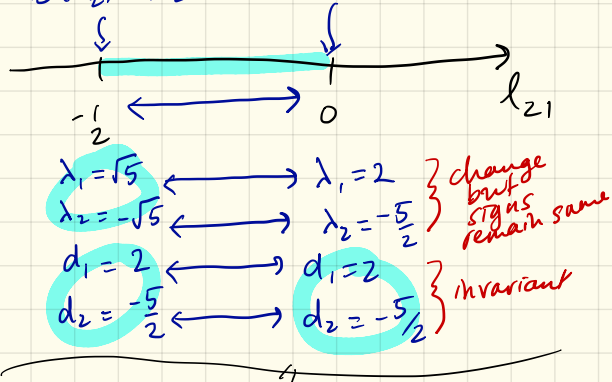 l₂₁
-1/2
0
λ₁ = √5 ↔ λ₁ = 2
λ₂ = -√5 ↔ λ₂ = -5/2
change
but
signs
remain same
d₁ = 2 ↔ d₁ = 2
d₂ = -5/2 ↔ d₂ = -5/2
invariant